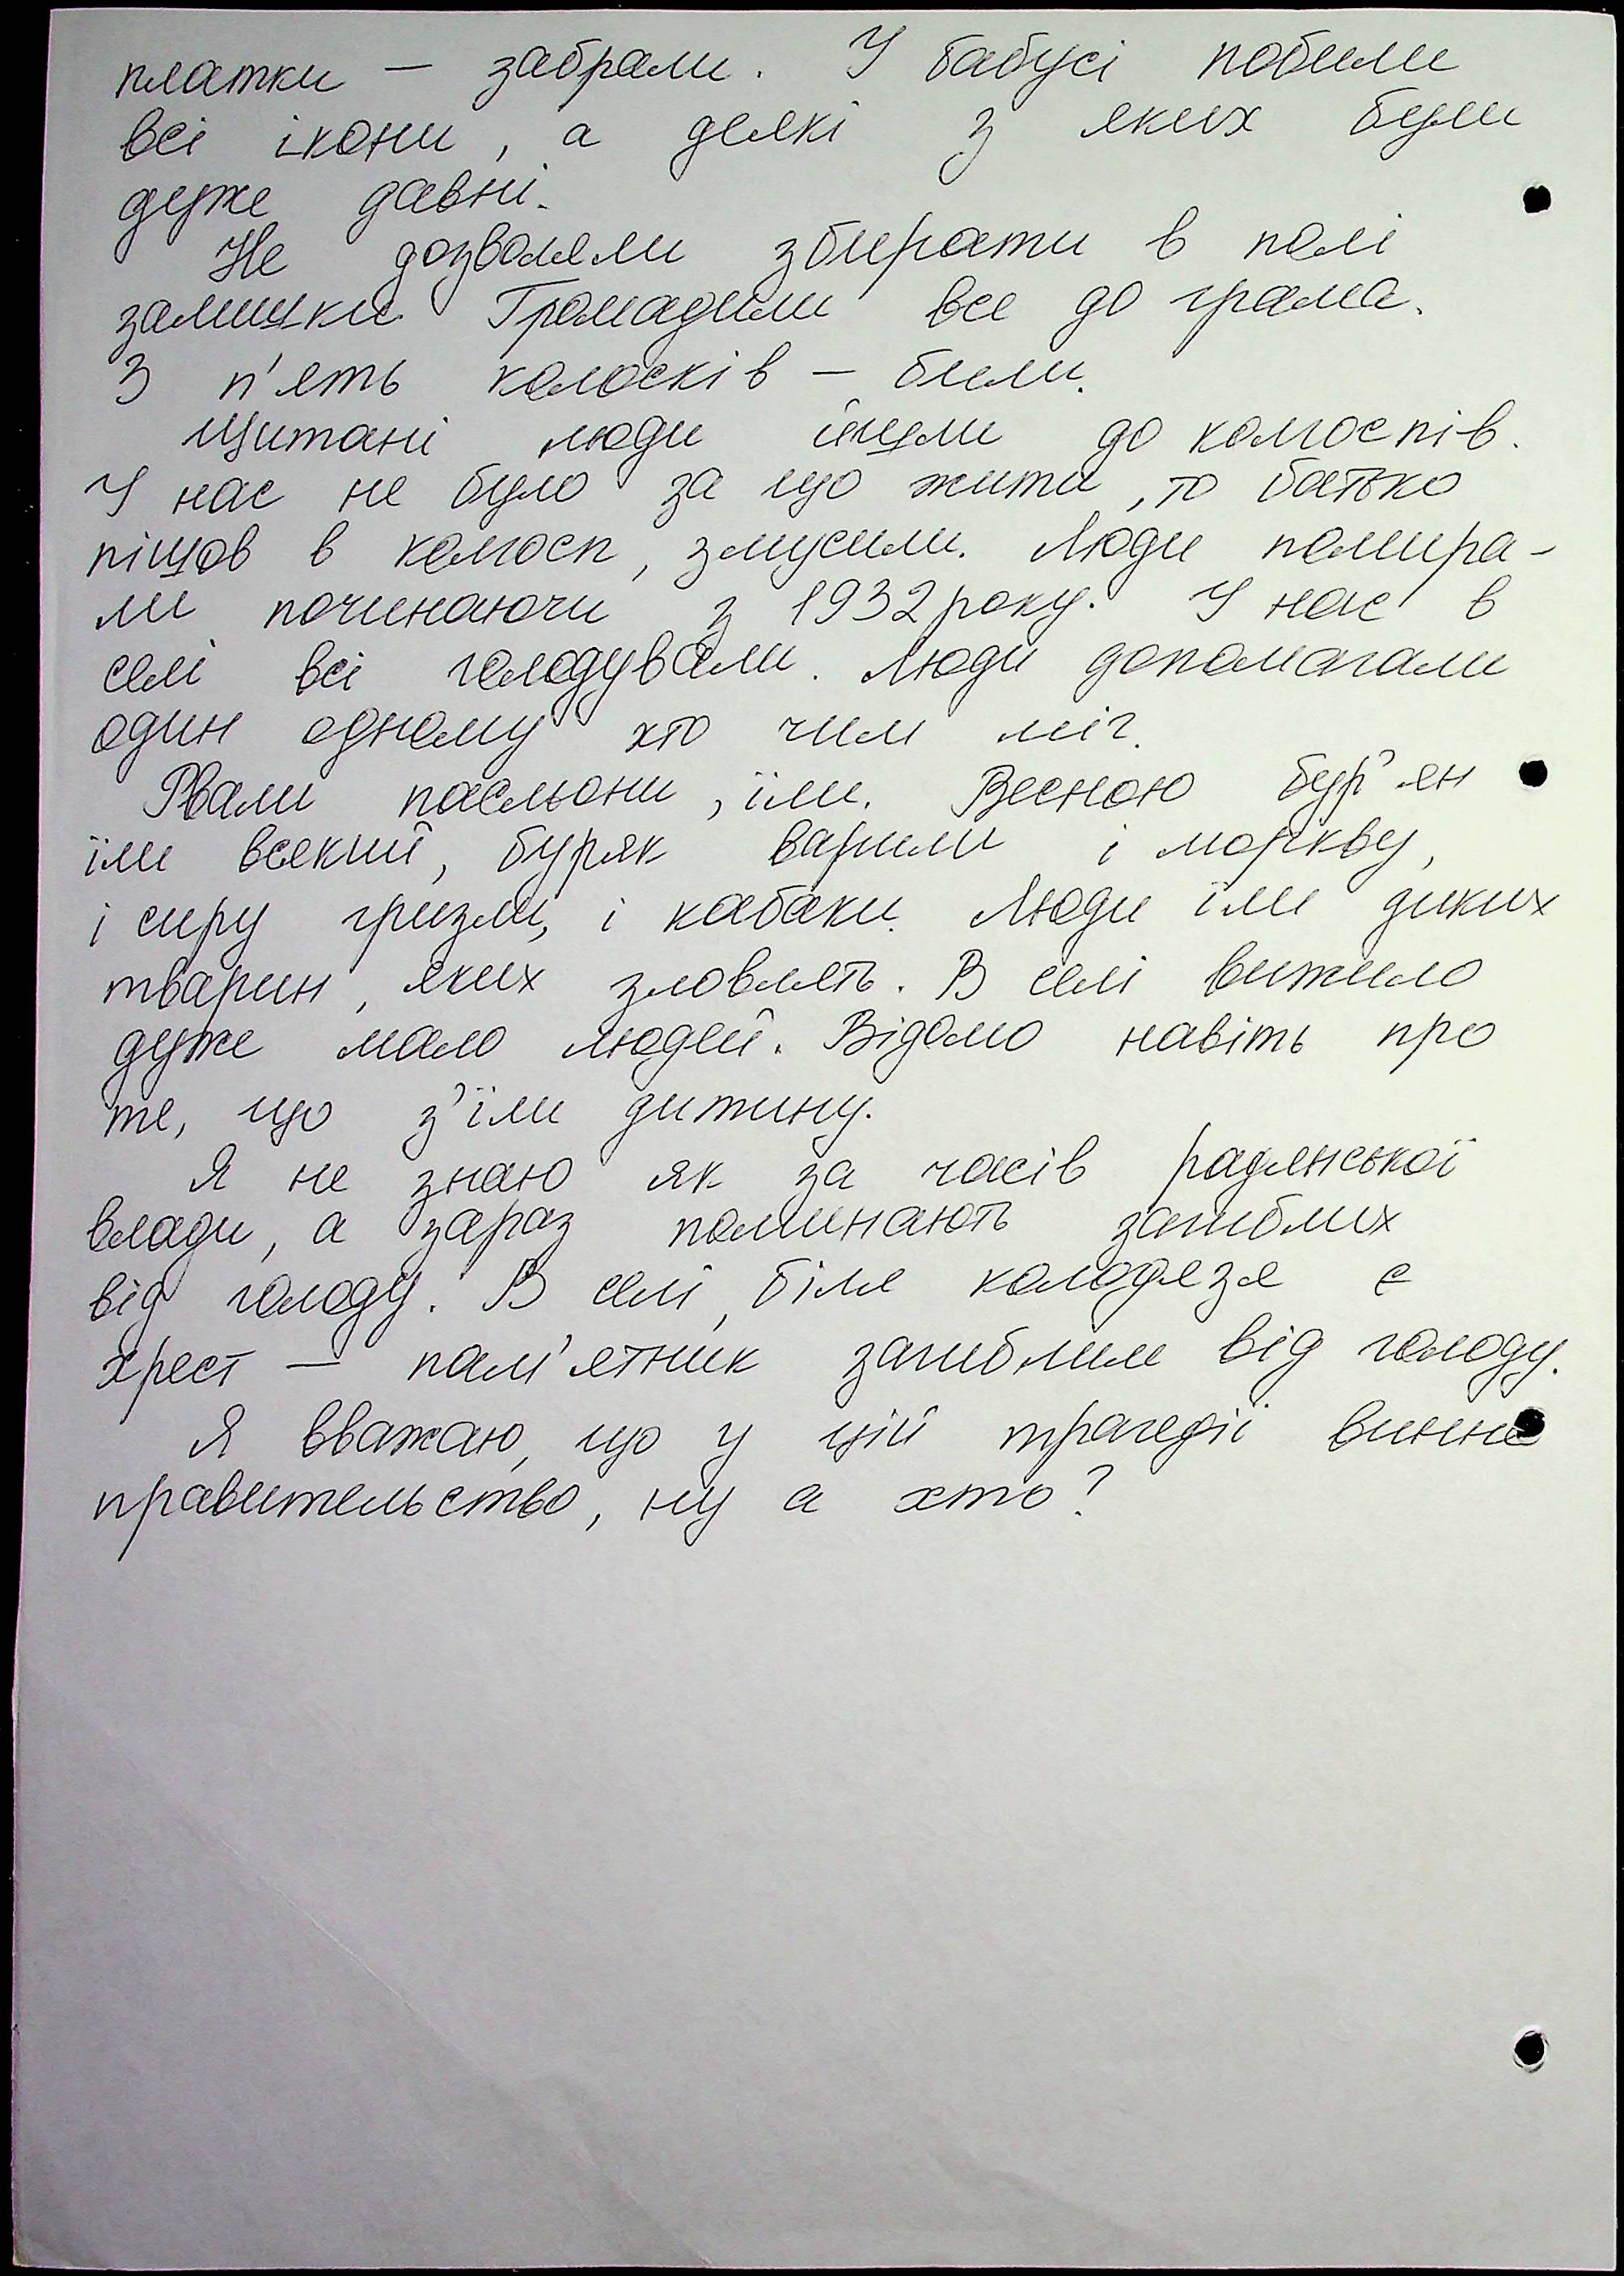 платки — забрали. У бабусі побили
всі ікони, а деякі з яких були
дуже давні.
Не дозволяли збирати в полі
залишки. Громадили все до грама.
З п'ять колосків – били.
Щитані люди йшли до колгоспів.
У нас не було за що жити, то батько
пішов в колгосп, змусили. Люди помира-
ли починаючи з 1932 року. У нас в
селі всі голодували. Люди допомагали
один одному хто чим міг.
Рвали пасльони, їли. Весною бур'ян
їли всякий, буряк варили і моркву,
і сиру гризли, і кабаки. Люди їли диких
тварин, яких зловлять. В селі вижило
дуже мало людей. Відомо навіть про
те, що з'їли дитину.
Я не знаю як за часів радянської
влади, а зараз поминають загиблих
від голоду. В селі, біля колодязя є
хрест — пам'ятник загиблим від голоду.
Я вважаю, що у цій трагедії винне
правительство, ну а хто?